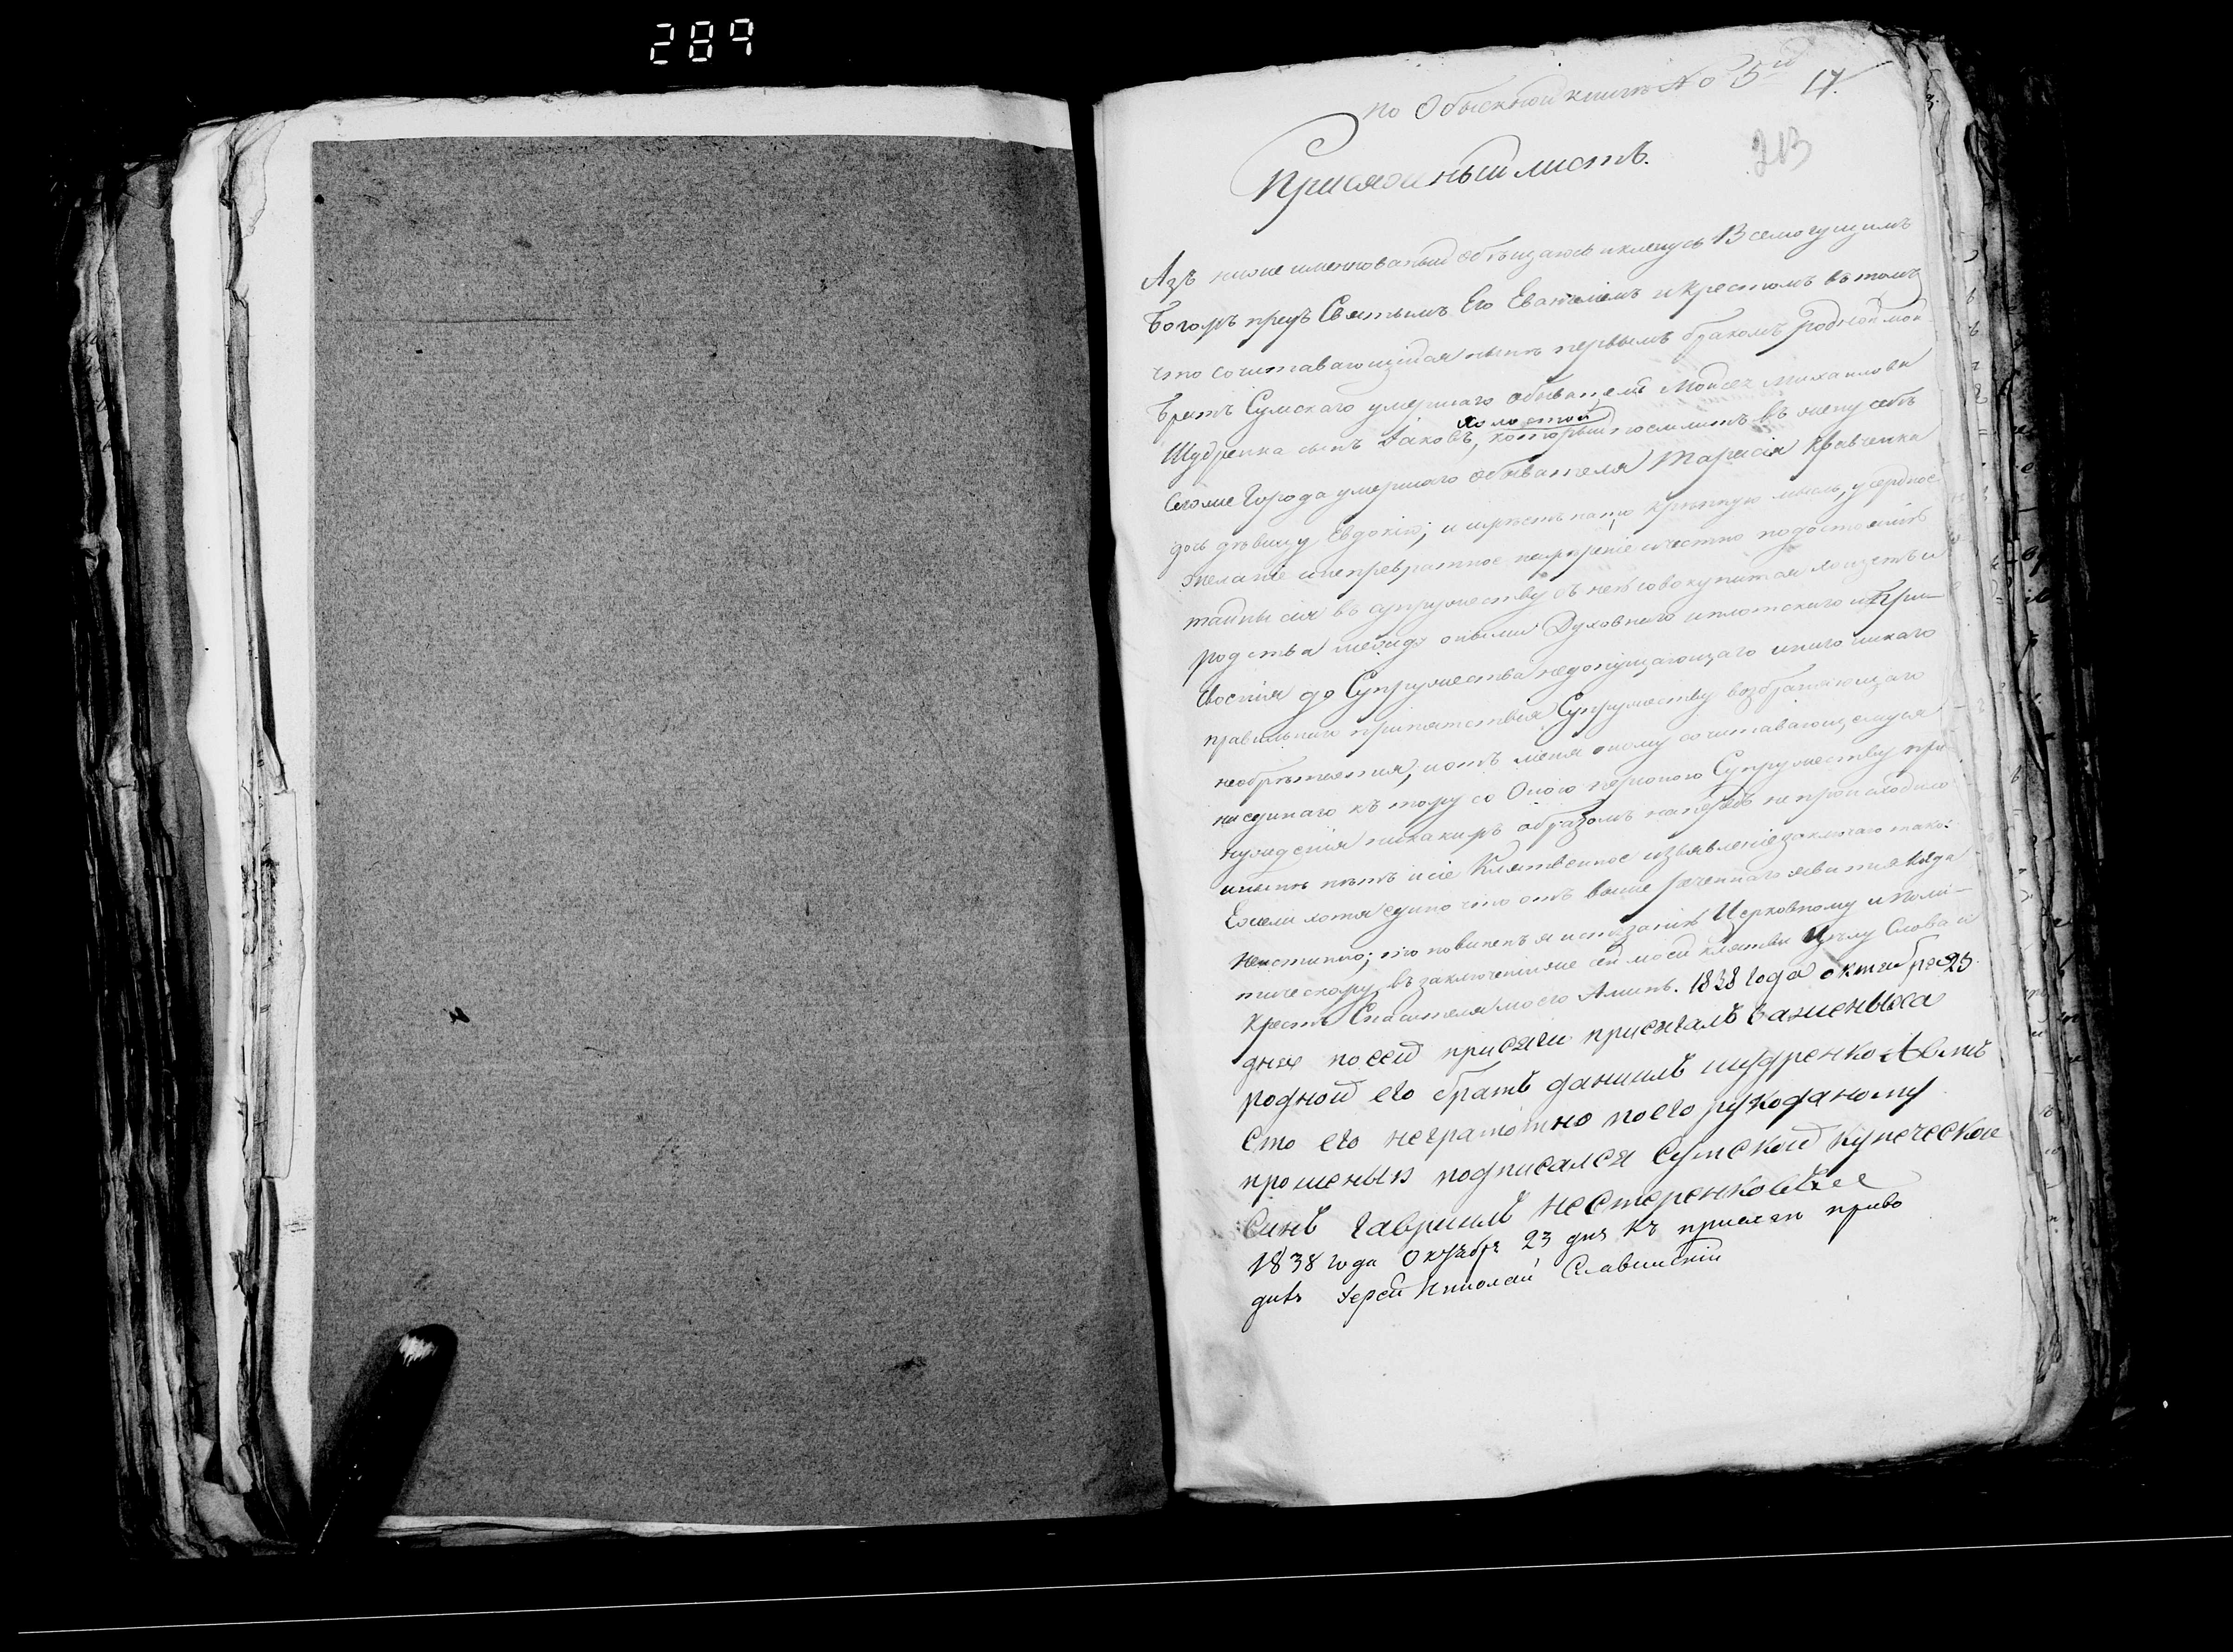 289
по Обыскной книгѣ № 5й
17.
213
Присяжный листъ.
Азъ ниже именнованный обѣщаюсь и кленусь Всемогущимъ
Богомъ предъ Святымъ Его Евангелiемъ и Крестомъ въ томъ
что сочитавающiйся нынѣ первымъ бракомъ родной мой
Братъ Сумскаго умершаго обывателя Моисея Михаилова
холостой
Шудренка сынъ Iаковъ, который поемлитъ въ жену себѣ
Сегоже Города умершаго обывателя Тарасiя Кравченка
дочь дѣвицу Евдокiю; и имѣетъ на то крѣпкую мысль, усердное
желанiе и непревратное намѣренiе и честно по достоянiю
тайны сея въ супружеству съ нею совокупится хощетъ и
родства между оными Духовнаго и плотскаго и При-
своенiя до Супружества недопущающаго и иного никаго
правильнаго припятствiя Супружеству возбраняющаго
необрѣтается; и отъ меня оному сочитавающемуся
ни единаго къ тому со Оною персоною Супружеству при
нужденiя никакимъ образомъ напредъ не происходило
и нынѣ нѣтъ и сiе Клятвенное изъявленiе заключаю тако:
Ежели хотя едино что отъ выше реченнаго явится когда
неистинно; то повиненъ я истязанiю Церковному и Поли-
тическому, въ заключенiи же сей моей клятвы Цѣлую Слова и
Крестъ Спасителя моего Аминь. 1838 года октября 23
дня по сей присяги присягалъ Зажениха
родной его братъ данiилъ шудренко Авмѣ
сто его неграмотно по его рукоданому
прошенью подписался Сумской купеческой
Синъ Гавриилъ нестеренко
1838 года Октября 23 дня къ присягѣ приво
дилъ Iерей Николай Славинскiй